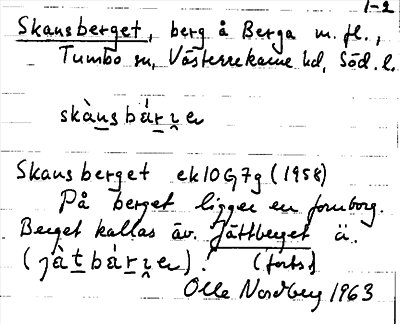 1-2
Skansberget, berg å Berga m. fl.,
Tumbo sn, Västerrekarne hd, Söd. l.
skànsbárɩ̯er
Skansberget ek 10G7g (1958)
På berget ligger en fornborg.
Berget kallas äv. Jättberget ä.
(jàtbárɩ̯er). (forts.)
Olle Nordberg 1963